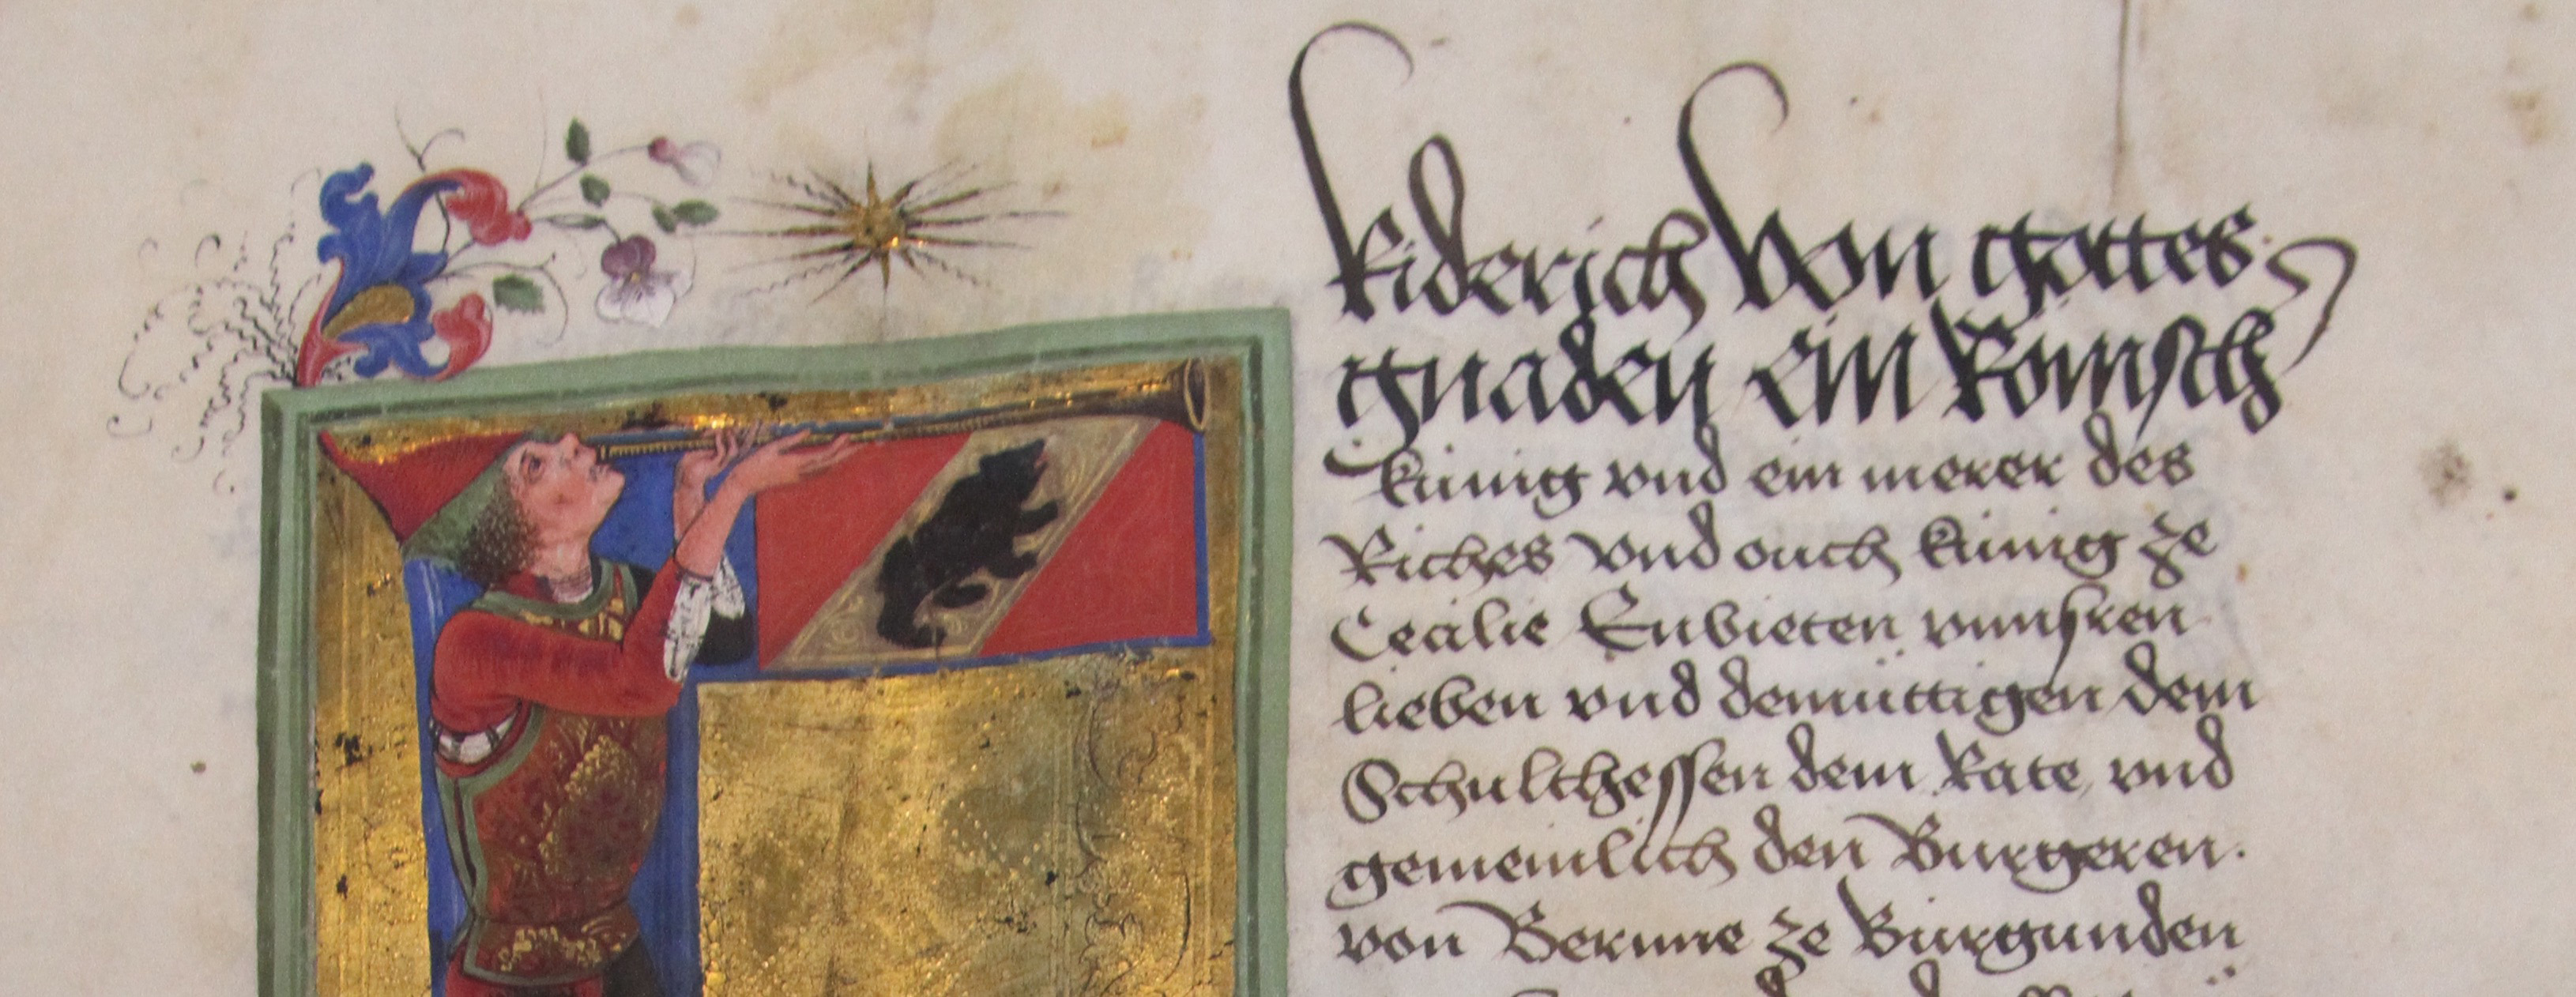 Friderich von gottes
gnaden ein Römsch
künig vnd ein merer des
Riches vnd ouch künig ze
Cecilie Enbieten vnnsren
lieben vnd demüttigen dem
Schulthessen dem Rate vnd
gemeinlich den Burgeren.
von Bernne ze Bürgunden